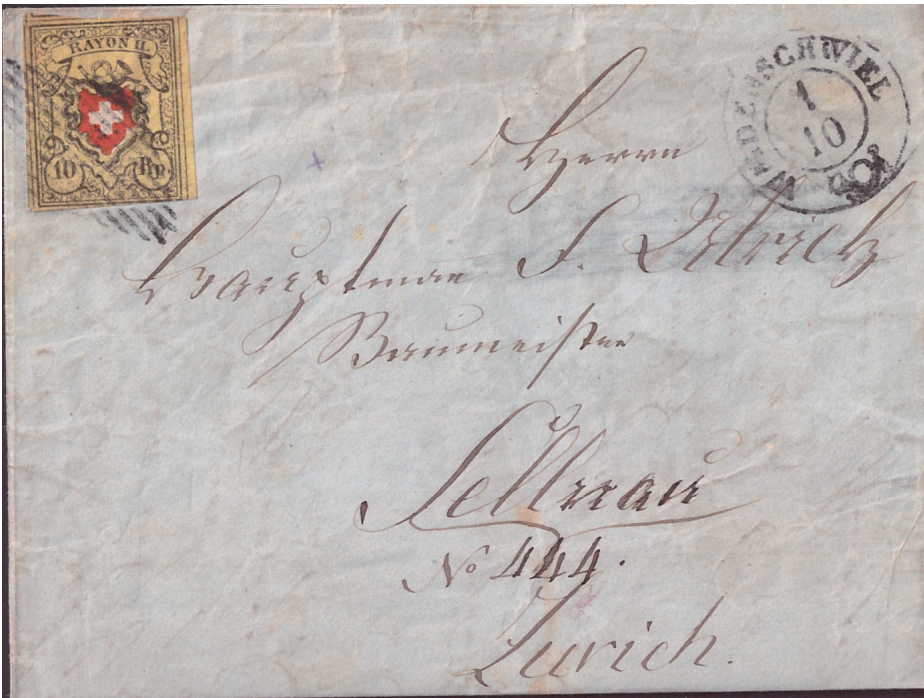 RAYON II.
10 Rp.
WÆDENSCHWIEL
1
10
Herrn
Hauptman F. Ulrich
Baumeister
Sellnau
No 444.
Zürich.